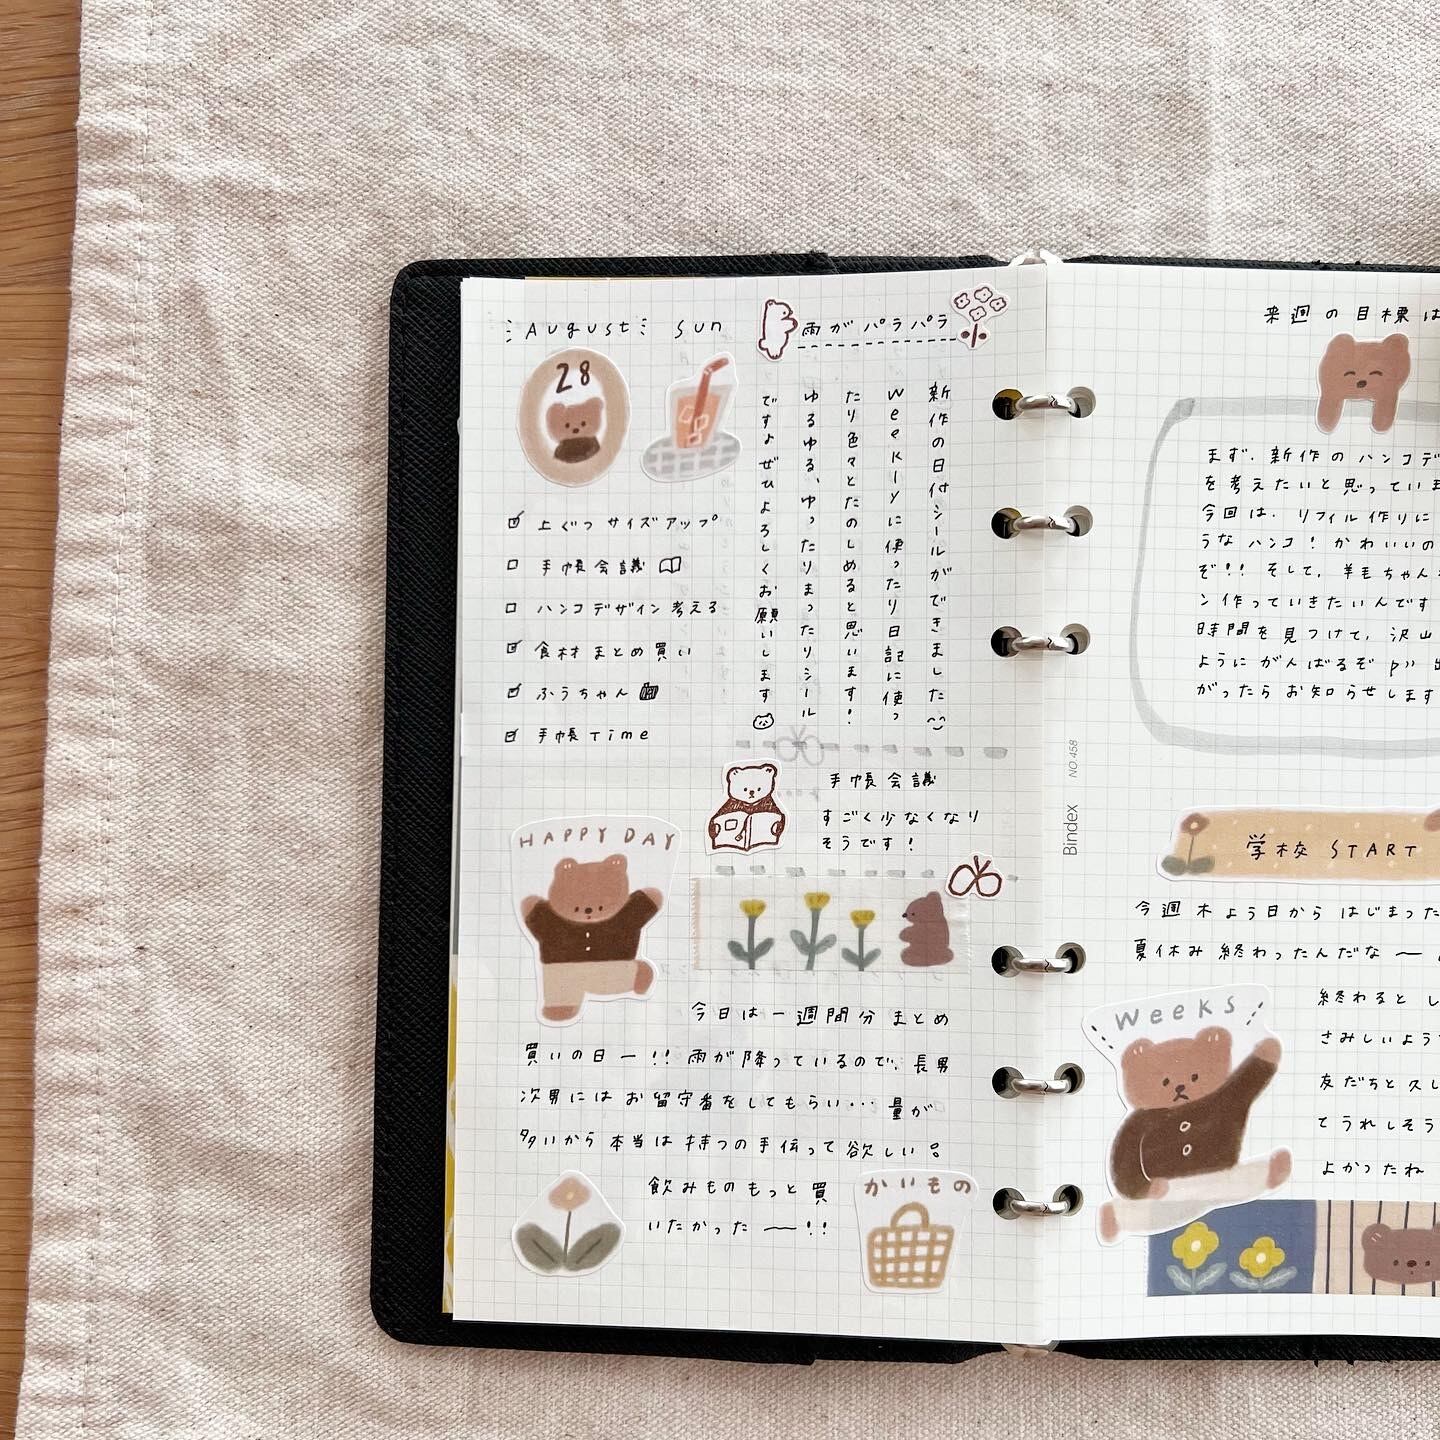 August Sun
28
雨がパラパラ
新作の日付シールができました
weeklyに使ったり日記に使っ
たり色々とたのしめると思います!
ゆるゆる、ゆったりまったりシール
ですよぜひよろしくお願いします
上ぐつサイズアップ
手帳会議
ハンコデザイン考える
食材まとめ買い
ふうちゃん
手帳Time
手帳会議
すごく少なくなり
そうです!
HAPPY DAY
今日は一週間分まとめ
買いの日ー!!雨が降っているので、長男
次男にはお留守番をしてもらい…量が
多いから本当は持つの手伝って欲しい。
飲みものもっと買
いたかった〜!!
かいもの
Bindex NO 458
来週の目標は
まず、新作のハンコデ
を考えたいと思っていま
今回は、リフィル作りに
うなハンコ!かわいいの
ぞ!!そして、羊毛ちゃん
ン作っていきたいんです
時間を見つけて、沢山
ようにがんばるぞ
がったらお知らせします
学校START
今週木よう日からはじまった
夏休み終わったんだな〜
weeks
終わるとし
さみしいよう
友だちと久し
てうれしそう
よかったね